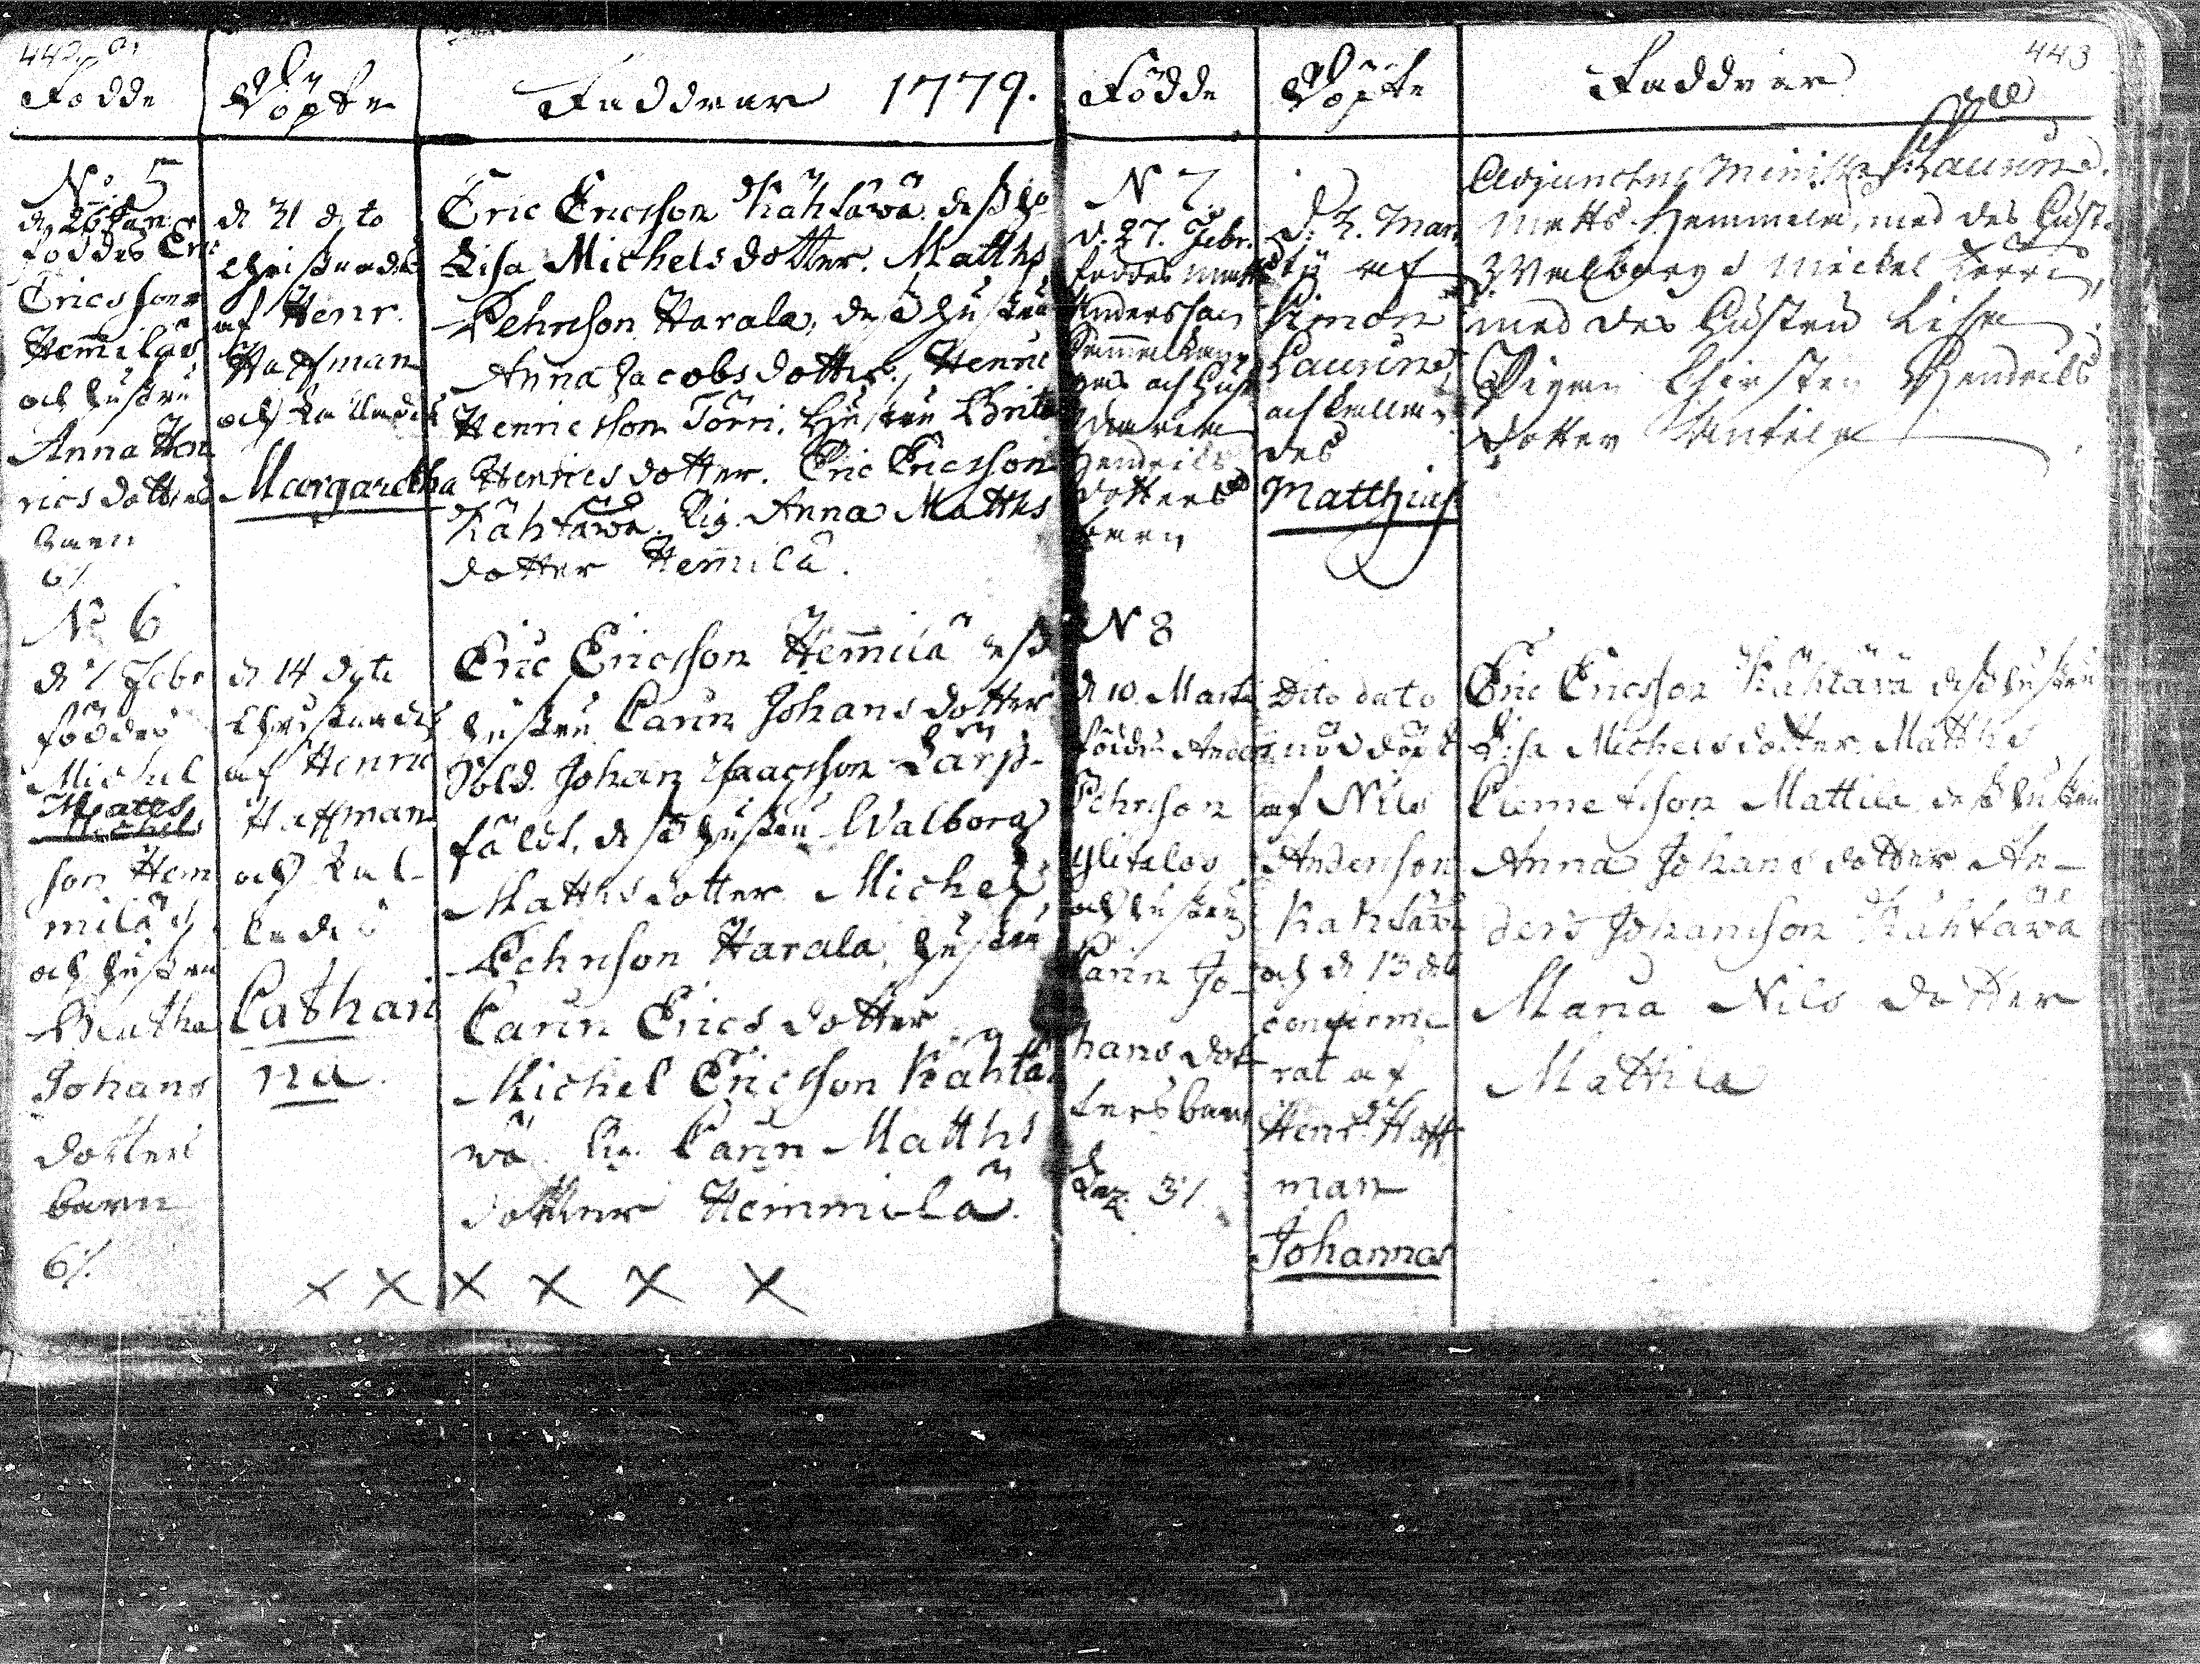 442
Födde
Döpte
Faddrar 1779.
No 5
d. 26 Jan.
föddes Eric
Ericsson
Hemmilas
och hustru
Anna Hen
rics dotters
barn
6/.
d 31 dito
Christnades
af Henr.
Haffman
och kallades
Margaretha
Eric Ericsson Kähtäwä dess h:
Lisa Michelsdotter. Matths
Pehrsson Harala, dess hustru
Anna Jacobsdotter, Henric
Henricsson Törri, hustru Brita
Henricsdotter. Eric Ericsson
Kähtäwä Pig. Anna Matths
dotter Hemmilä.
No 6
d 7 Febr
föddes
Michel
Matts
son Hem
miläs
och hustru
Beatha
Johans
dotters
barn
6/.
d 14 dito
Christnades
af Henric
Haffman
och kal-
lades
Cathari
na.
Eric Ericsson Hemmilä dess
hustru Carin Johansdotter
Sold. Johan Isaacsson Lärp-
fält, dess hustru Walborg
Matthsdotter Michel
Pehrsson Harala, hustru
Carin Ericsdotter
Michel Ericsson Kähtä
wä Pig. Carin Matths
dotter Hemmilä.
x x x x x x
443
Födde
Döpte
Faddrar
N 7.
d. 27. Febr.
föddes Matts
Anderssons
och hust
Maria
Hendrics
dotters
barn
d. 2. Mar
tij af
Simon
Laurin
och kalla
des
Matthias
Adjunctus Minist. Laurin.
Matts Hemmila, med des hust.
Walborg Mickel Törri,
med des hustru Lisa
Pigan Chirstin Hendrics
dotter Anttila
N 8
d 10. Marti
föddes Anders
Pehrsson
Ylitalos
och hustru
Carin Jo-
hans dot
ters barn
3/.
Dito dato
nöddöpt
af Nils
Andersson
Kahtäwä
och d 13 dito
confirme
rat af
Henr. Haff
man
Johannes
Eric Ericsson Kähtäwä dess hustru
Lisa Michelsdotter. Matths
Clemetsson Mattila dess hustru
Anna Johansdotter An-
ders Johansson Kähtäwä
Maria Nils dotter
Mattila